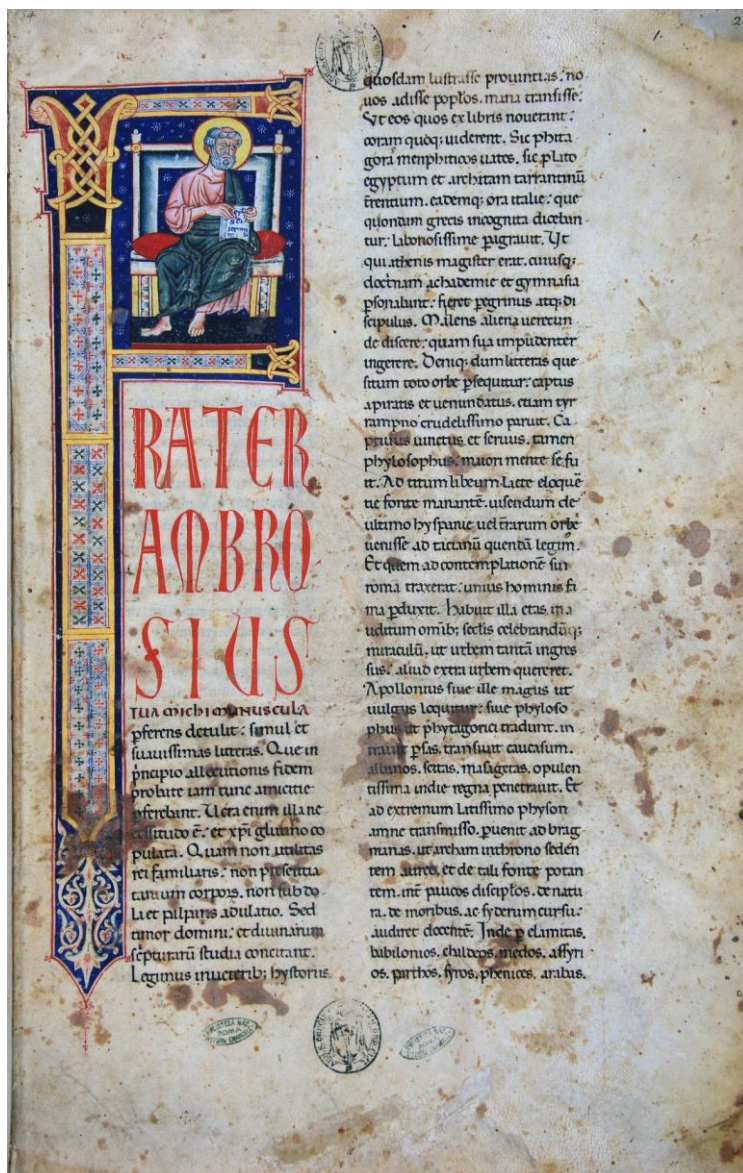 2
1.
F
RATER
AMBRO
SIUS
TUA MICHI MUNUSCULA
pferens detulit: simul et
suauissimas litteras. Que in
principio allocutionis fidem
probate iam tunc amicitie
pferebant. Uera enim illa ne
cessitudo ē: et xpi glutino co
pulata. Quam non utilitas
rei familiaris: non presentia
tantum corporis, non sub do
la et palpans adulatio. Sed
timor domini: et diuinarum
scripturarū studia conciliant.
Legimus inueterib; hystoriis
quosdam lustrasse prouintias: no
uos adisse poplos. maria transisse:
Vt eos quos ex libris nouerant:
coram quoq; uiderent. Sic phita
gora menphiticos uates. sic plato
egyptum et architam tarrantinū
eandemq; ora italie: que
quondam grecia incognita diceban
tur: laboriosissime pagrauit. Ut
qui athenis magister erat. cuiusq;
doctrinam achademie et gymnasia
psonabant: fieret pegrinus atq; di
scipulus. Malens aliena uerecun
de discere: quam sua impudenter
ingerere. Deniq; dum litteras que
situm toto orbe psequitur: captus
apiratis et uenundatus. etiam tyr
rampno crudelissimo paruit. Ca
ptiuus uinctus et seruus. tamen
phylosophus: maiori mente se fu
it. Ad titum libeum. lacte eloquē
tie fonte manantē. uisendum de
ultimo hyspanie uel
uenisse ad quendā legim.
Et quem ad contemplationē sui
roma traxerat: unius hominis fa
ma pduxit. Habuit illa etas. ina
uditum omib; seclis celebrandūq;
miraculū. ut urbem tantā ingres
sus: aliud extra urbem quererent.
Apollonius siue ille magus ut
uulgus loquitur: siue phyloso
phus ut phytagorici tradunt. in
trauit psas. transiuit caucasum.
albanos. scitas. masagetas. opulen
tissima indie regna penetrauit. Et
ad extremum latissimo physon
amne transmisso. puenit ad brag
manas. ut archam inthrono seden
tem aureo. et de tali fonte potan
tem. int paucos discipłos. de natu
ra. de moribus. ac syderum cursu:
audiret docentē. Inde p elamitas.
babilonios. chaldeos. medos. assyri
os. parthos. syros. phenices. arabas.
BIBLIOTECA NAZ.
ROMA
VITTORIO EMANUELE